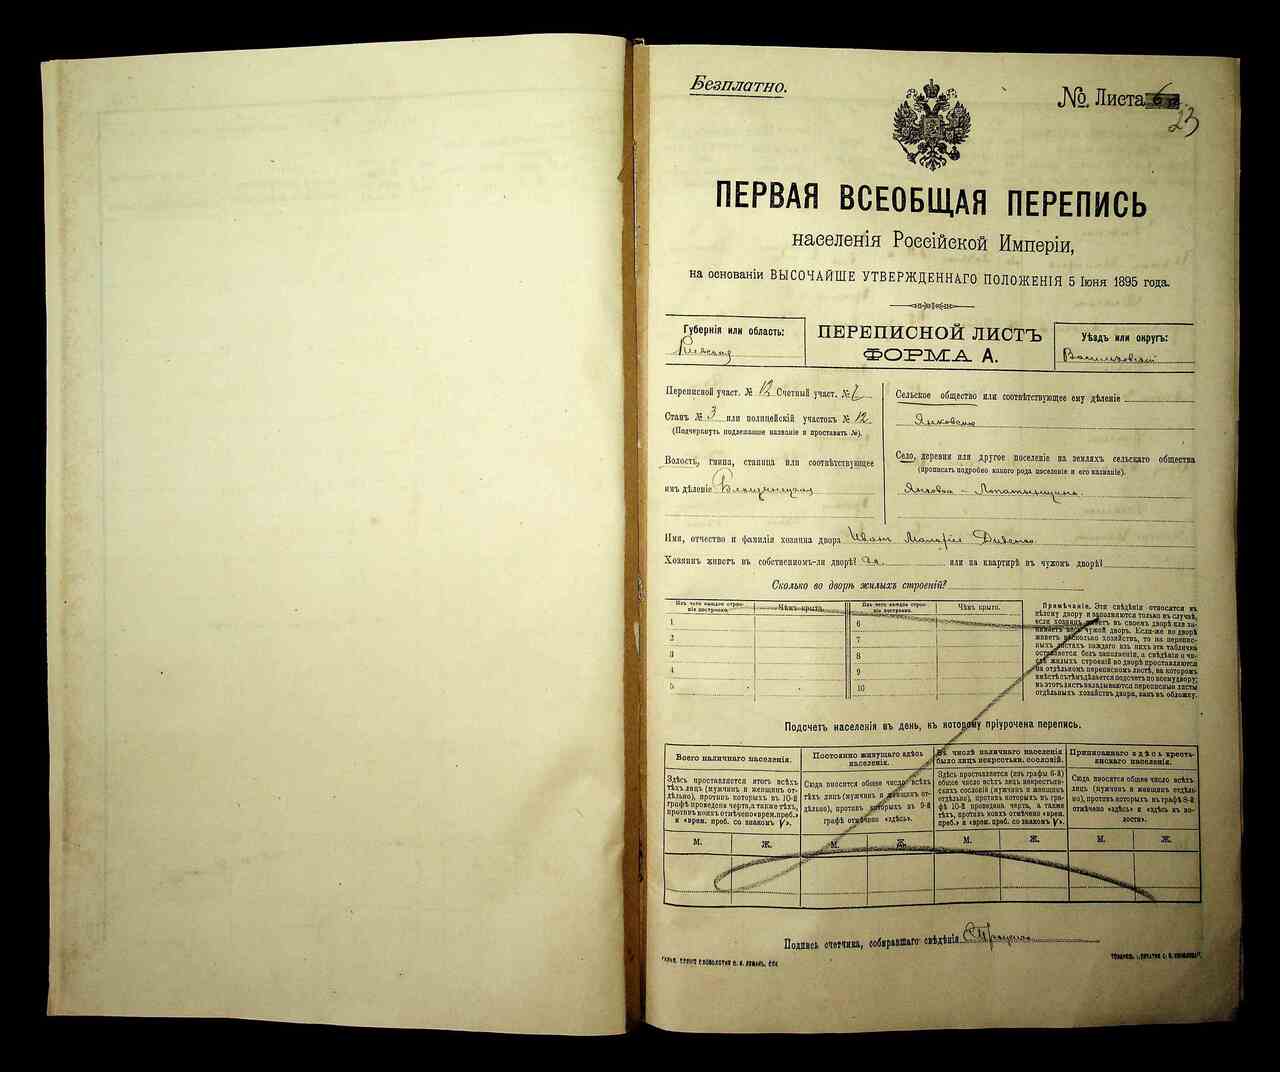 Безплатно.
№. Листа 6
23
ПЕРВАЯ ВСЕОБЩАЯ ПЕРЕПИСЬ
населенія Россійской Имперіи,
на основаніи ВЫСОЧАЙШЕ УТВЕРЖДЕННАГО ПОЛОЖЕНІЯ 5 Іюня 1895 года.
Губернія или область:
ПЕРЕПИСНОЙ ЛИСТЪ
ФОРМА А.
Уѣздъ или округъ:
Васильковскій
Переписной участ. № 12 Счетный участ. № 7
Станъ № 3 или полицейскій участокъ № 12
(Подчеркнуть подлежащее названіе и проставить №).
Волость, гмина, станица или соотвѣтствующее
имъ дѣленіе
Сельское общество или соотвѣтствующее ему дѣленіе
Село, деревня или другое поселеніе на земляхъ сельскаго общества
(прописать подробно какого рода поселеніе и его названіе).
Янковка - Лопатинщина.
Имя, отчество и фамилія хозяина двора Иванъ
Хозяинъ живетъ въ собственномъ-ли дворѣ? да. или на квартирѣ въ чужомъ дворѣ?
Сколько во дворѣ жилыхъ строеній?
Изъ чего каждое строеніе построено.
Чѣмъ крыто.
Изъ чего каждое строеніе построено.
Чѣмъ крыто.
1
2
3
4
5
6
7
8
9
10
Примѣчаніе. Эти свѣдѣнія относятся къ
цѣлому двору и заполняются только въ случаѣ,
если хозяинъ живетъ въ своемъ дворѣ или за-
нимаетъ весь чужой дворъ. Если-же во дворѣ
живетъ нѣсколько хозяйствъ, то на перепис-
ныхъ листахъ каждаго изъ нихъ эта табличка
оставляется безъ заполненія, а свѣдѣнія о чи-
слѣ жилыхъ строеній во дворѣ проставляются
на отдѣльномъ переписномъ листѣ, на которомъ
вмѣстѣ съ тѣмъ дѣлается подсчетъ по всему двору;
въ этотъ листъ вкладываются переписные листы
отдѣльныхъ хозяйствъ двора, какъ въ обложку.
Подсчетъ населенія въ день, къ которому пріурочена перепись.
Всего наличнаго населенія.
Здѣсь проставляется итогъ всѣхъ
тѣхъ лицъ (мужчинъ и женщинъ от-
дѣльно), противъ которыхъ въ 10-й
графѣ проведена черта, а также тѣхъ,
противъ коихъ отмѣчено «врем. преб.»
и «врем. преб. со знакомъ V».
Постоянно живущаго здѣсь
населенія.
Сюда вносится общее число всѣхъ
тѣхъ лицъ (мужчинъ и женщинъ от-
дѣльно), противъ которыхъ въ 9-й
графѣ отмѣчено «здѣсь».
Въ числѣ наличнаго населенія
было лицъ некрестьянск. сословій.
Здѣсь проставляется (изъ графы 6-й)
общее число всѣхъ лицъ некрестьян-
скихъ сословій (мужчинъ и женщинъ
отдѣльно), противъ которыхъ въ гра-
фѣ 10-й проведена черта, а также
тѣхъ, противъ коихъ отмѣчено «врем.
преб.» и «врем. преб. со знакомъ V».
Приписаннаго здѣсь кресть-
янскаго населенія.
Сюда вносится общее число всѣхъ
лицъ (мужчинъ и женщинъ отдѣль-
но), противъ которыхъ въ графѣ 8-й
отмѣчено «здѣсь» и «здѣсь въ во-
лости».
М. Ж. М. Ж. М. Ж. М. Ж.
Подпись счетчика, собиравшаго свѣдѣнія